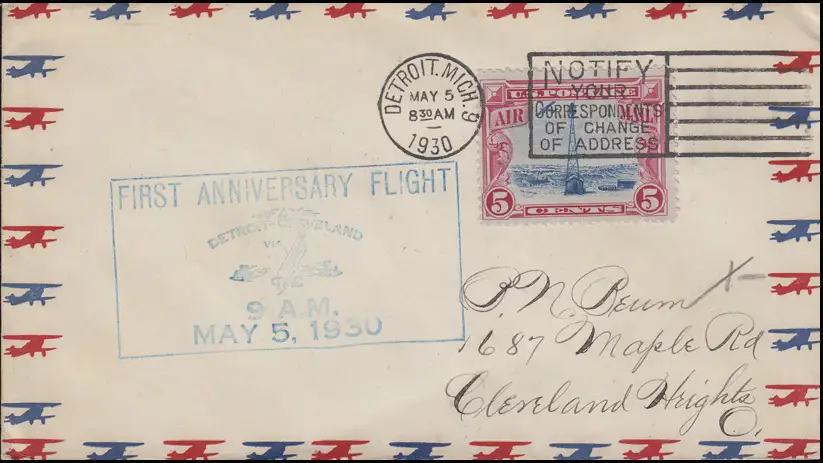 DETROIT. MICH. 9
MAY 5
8 30 AM
1930
NOTIFY
YOUR
CORRESPONDENTS
OF CHANGE
OF ADDRESS
U.S. POSTAGE
AIR MAIL
5 CENTS 5
FIRST ANNIVERSARY FLIGHT
DETROIT-CLEVELAND
VIA
9 A.M.
MAY 5, 1930
P. N. Beum
1687 Maple Rd
Cleveland Heights
O.